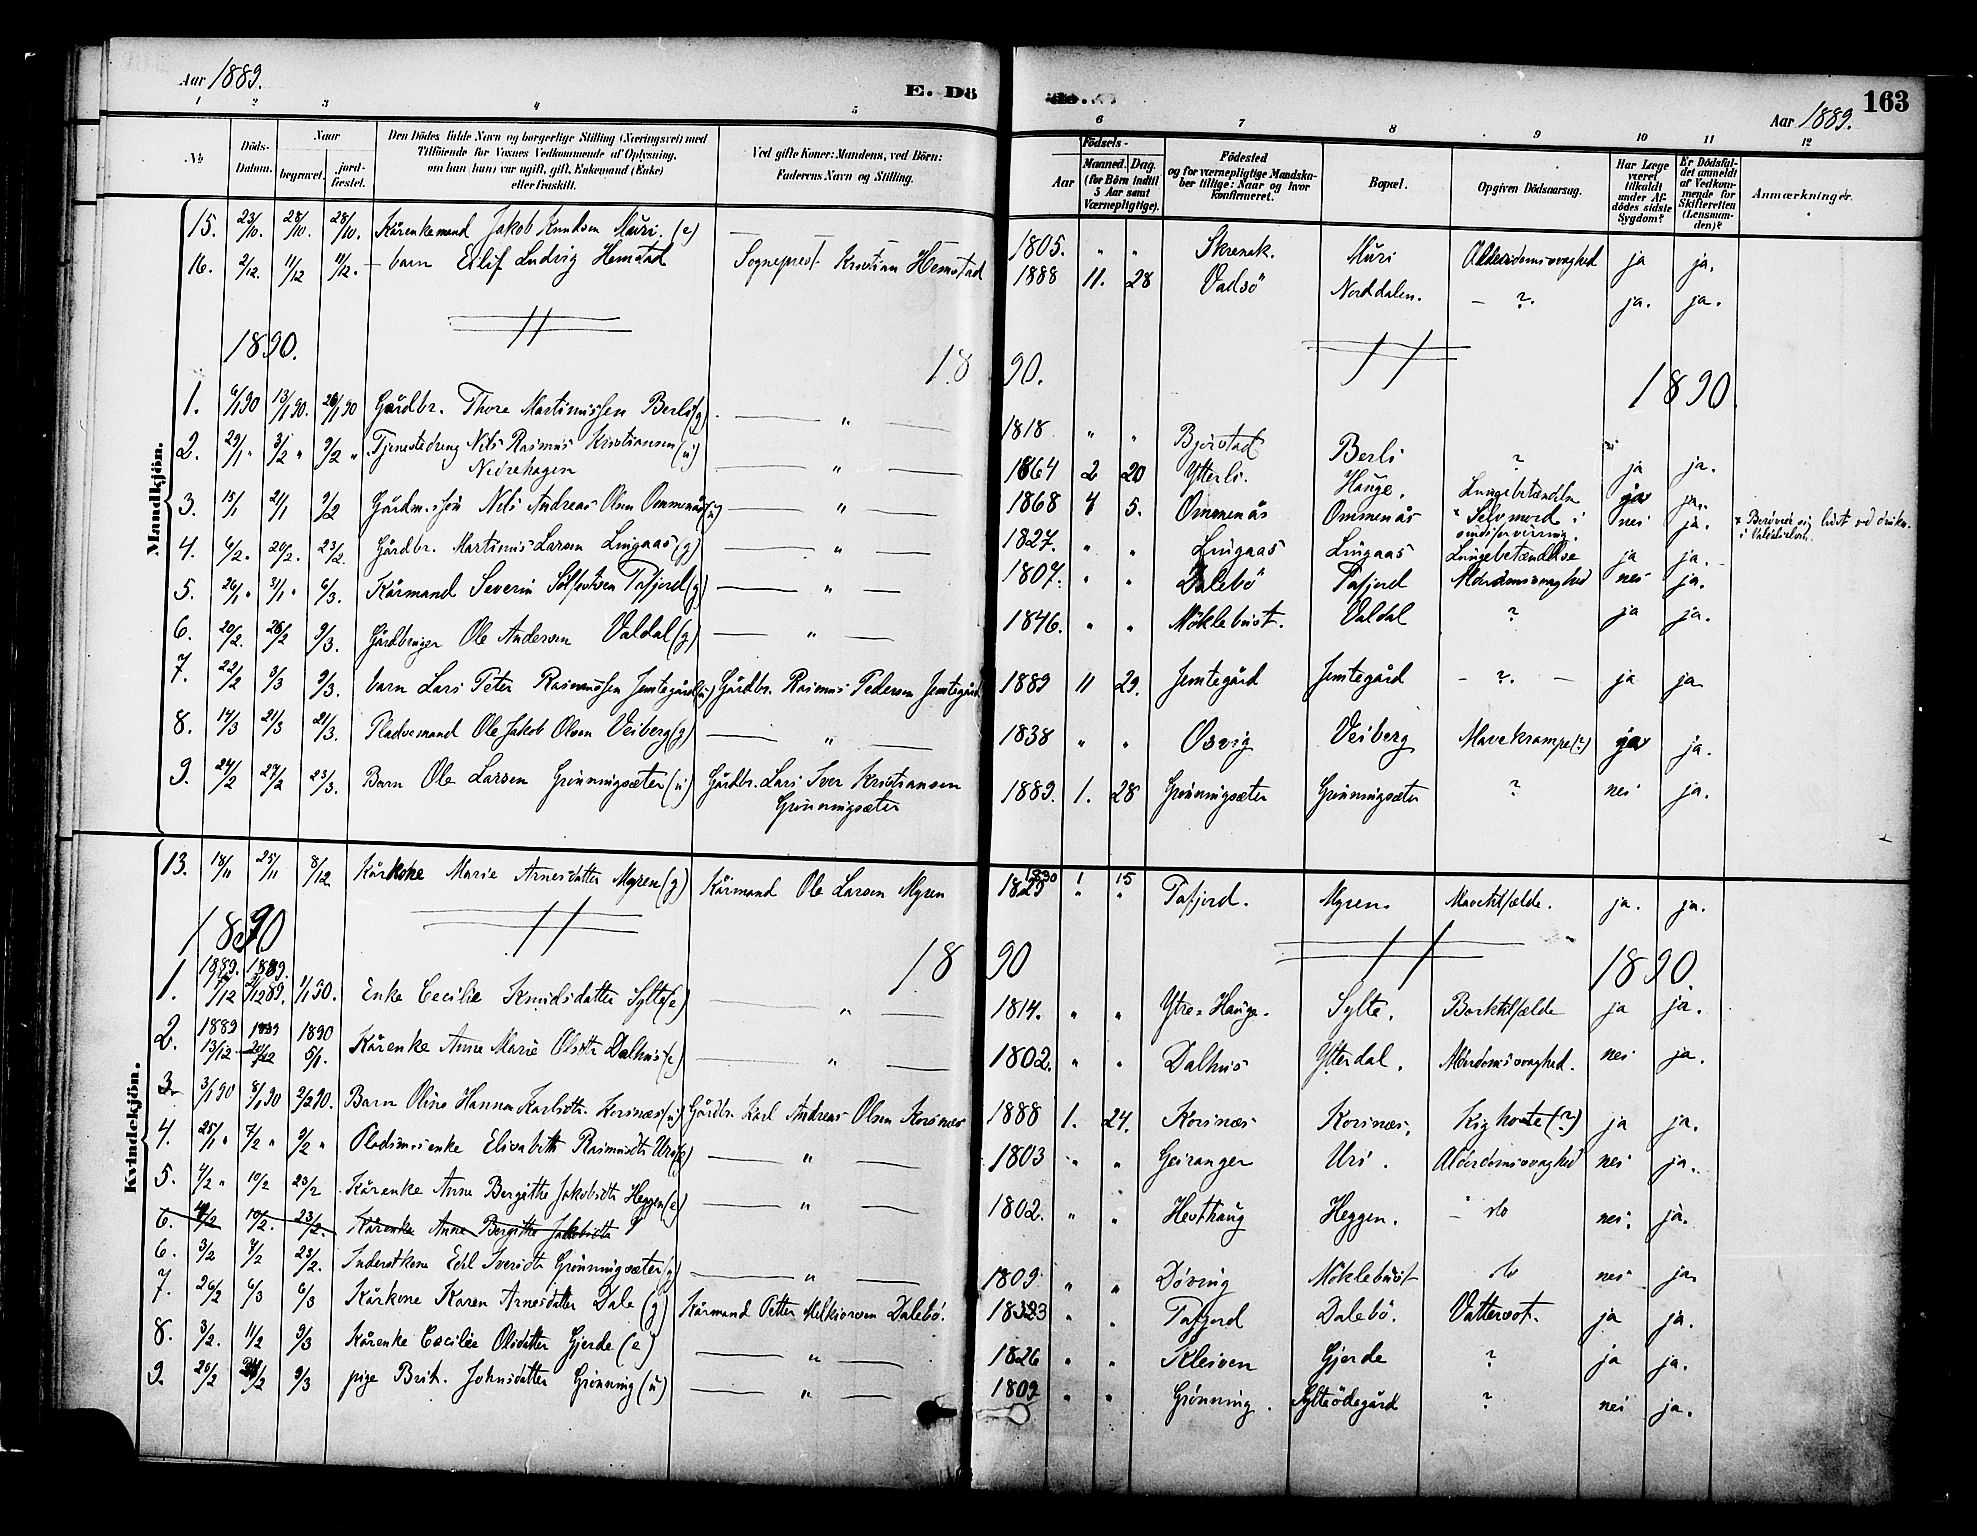 Aar 1889.
E. Dö
de.
Aar 1889.
163
1 2 3 4 5 6 7 8 9 10 11 12
No
Döds-Datum.
Naar
begravet.
jord-fæstet.
Den Dödes fulde Navn og borgerlige Stilling (Næringsvei) med
Tilföiende for Voxnes Vedkommende af Oplysning,
om han (hun) var ugift, gift, Enkemand (Enke)
eller fraskilt.
Ved gifte Koner: Mandens, ved Börn:
Faderens Navn og Stilling.
Födsels-
Aar
Maaned. Dag.
(for Börn indtil
5 Aar samt
Værnepligtige).
Födested
og for værnepligtige Mandska-
ber tillige: Naar og hvor
konfirmeret.
Bopæl.
Opgiven Dödsaarsag.
Har Læge
været
tilkaldt
under Af-
dödes sidste
Sygdom?
Er Dödsfal-
det anmeldt
af Vedkom-
mende for
Skifteretten
(Lensman-
den)?
Anmærkninger.
Mandkjön.
15. 23/10. 28/10. 28/10. Kårenkemand Jakob Knudsen Muri. (e) 1805. " " Skrenak. Muri Alderdomssvaghed ja ja.
16. 2/12. 11/12 11/12. - barn Eilif Ludvig Hemstad Sogneprest Kristian Hemstad 1888 11. 28 Vadsö Norddalen. - ?. ja. ja.
1890. 18 90. 1890
1. 6/1 90 13/1 90. 26/1 90 Gårdbr. Thore Martinussen Berli (g). " 1818 " " Bjørstad Berli ? ja ja.
2. 29/1 " 3/2 " 9/2 " Tjenestedreng Nils Rasmus Kristiansen (u)
Nedrehagen " 1864 2 20 Ytterli. Hauge. Lungebetændelse
3. 15/1 21/1 9/2 Gårdm.søn Nils Andreas Olsen Ommenås (u) " 1868 4 5. Ommenås Ommenås * Selvmord i
sindsforvirring. nei ja. * Berøvede sig livet ved drukn.
4. 6/2. 20/2. 23/2. Gårdbr. Martinus Larsen Lingaas (g) " 1827. " " Lingaas Lingaas Lungebetændelse ja ja.
5. 26/1 " 31/1 " 6/3. Kårmand Severin Tafjord (g) " 1807. " " Dalebö Tafjord Alderdomssvaghed nei ja.
6. 20/2. 28/2 9/3. Gårdbruger Ole Andersen Valdal (g) " 1846. " " Möklebust. Valdal ? ja ja.
7. 22/2 3/3 9/3. barn Lars Peter Rasmussen Jemtegård (u) Gårdbr. Rasmus Pedersen Jemtegård 1889 11 29. Jemtegård Jemtegård - ?. - ja ja
8. 14/3 21/3 21/3. Pladsemand Ole Jakob Olsen Veiberg (g) " 1838 " " Osvig Veiberg Mavekrampe (?) ja ja.
9. 24/2 27/2 23/3. Barn Ole Larsen Grønningsæter (u) Gårdbr. Lars Iver Kristiansen
Grønningsæter 1889. 1. 28 Grønningsæter Grønningsæter ? nei ja.
Kvindekjön.
13. 18/11 25/11 8/12. Kårkone Marie Arnesdatter Myren (g) Kårmand Ole Larsen Myren 1829 1830 1 15 " " Tafjord. Myren. Mavetilfælde. ja. ja.
1890 18 90 1890.
1. 1889. 1889. 1/1 90. Enke Cecilie Knudsdatter Sylte (e) " 1814. " " Ytre-Hauge. Sylte. Brokktilfælde ja ja.
2. 1889 13/12 1889 20/12 1890 5/1. Kårenke Anne Marie Olsdtr Dalhus (e) " 1802. " " Dalhus Ytterdal. Alderdomssvaghed. nei ja.
3. 3/1 90 8/1 90 2/2 90. Barn Oline Hanna Karlsdtr. Korsnæs (u) Gårdbr. Karl Andreas Olsen Korsnæs 1888 1. 24. Korsnæs Korsnæs. Kighoste (?) ja ja.
4. 25/1 " 7/2 " 9/2 " Pladsmsenke Elisabeth Rasmusdtr Uri (e) " 1803 " " Geiranger Uri. Alderdomssvaghed nei ja.
5. 4/2 " 10/2 23/2 Kårenke Anne Bergithe Jakobsdtr Heggen (e) " 1802. " " Hesthaug Heggen. - do nei. ja.
6. 4/2 10/2. 23/2. Kårenke Anne Bergithe Jakobsdtr
6. 3/2 7/2 23/2. Inderstkone Edl Iversdtr Grønningsæter (g) " 1809 " " Døving Möklebust do nei ja.
7. 26/2 6/3 6/3 Kårkone Karen Arnesdatter Dale (g) Kårmand Petter Melkiorsen Dalebö. 1823 " " Tafjord Dalebö. Vattersot. ja ja.
8. 3/2. 11/2 9/3 Kårenke Cecilie Olsdatter Gjerde (e) " 1826 " " Kleiven Gjerde ? ja ja.
9. 20/2 9/3 pige Brit. Johnsdatter Grønning (u) " 1809 " " Grønning. Sylteödegård ? nei ja.